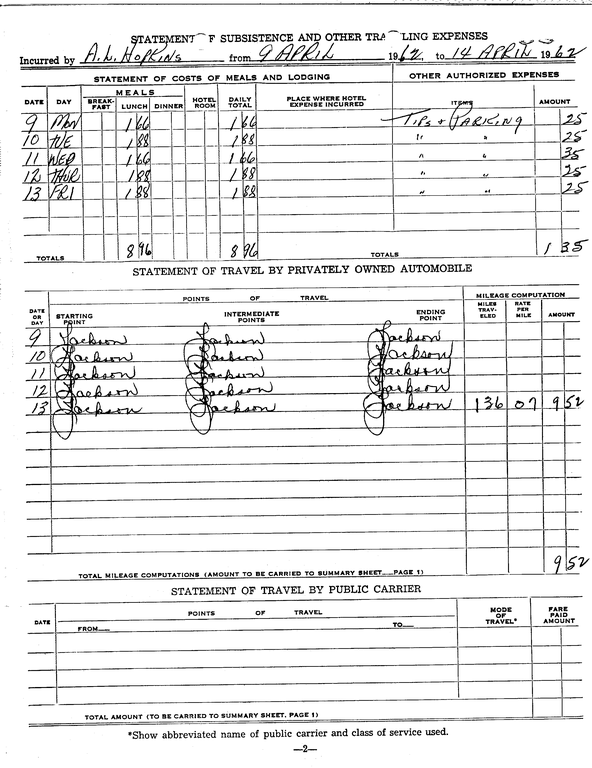 STATEMENT F SUBSISTENCE AND OTHER TRA LING EXPENSES
Incurred by A.L. HOPKINS from 9 APRIL 1962, to 14 APRIL 1962
STATEMENT OF COSTS OF MEALS AND LODGING OTHER AUTHORIZED EXPENSES
DATE DAY MEALS BREAK-FAST LUNCH DINNER HOTEL ROOM DAILY TOTAL PLACE WHERE HOTEL EXPENSE INCURRED ITEMS AMOUNT
9 MON 1 66 1 66 TIPS & PARKING 25
10 TUE 1 88 1 88 " " 25
11 WED 1 66 1 66 " " 35
12 THUR 1 88 1 88 " " 25
13 FRI 1 88 1 88 " " 25
TOTALS 8 96 8 96 TOTALS 1 35
STATEMENT OF TRAVEL BY PRIVATELY OWNED AUTOMOBILE
POINTS OF TRAVEL MILEAGE COMPUTATION
DATE OR DAY STARTING POINT INTERMEDIATE POINTS ENDING POINT MILES TRAV-ELED RATE PER MILE AMOUNT
9 Jackson Jackson Jackson
10 Jackson Jackson Jackson
11 Jackson Jackson Jackson
12 Jackson Jackson Jackson
13 Jackson Jackson Jackson 136 07 9 52
9 52
TOTAL MILEAGE COMPUTATIONS (AMOUNT TO BE CARRIED TO SUMMARY SHEET__PAGE 1)
STATEMENT OF TRAVEL BY PUBLIC CARRIER
DATE POINTS OF TRAVEL MODE OF TRAVEL* FARE PAID AMOUNT
FROM__ TO__
TOTAL AMOUNT (TO BE CARRIED TO SUMMARY SHEET, PAGE 1)
*Show abbreviated name of public carrier and class of service used.
—2—